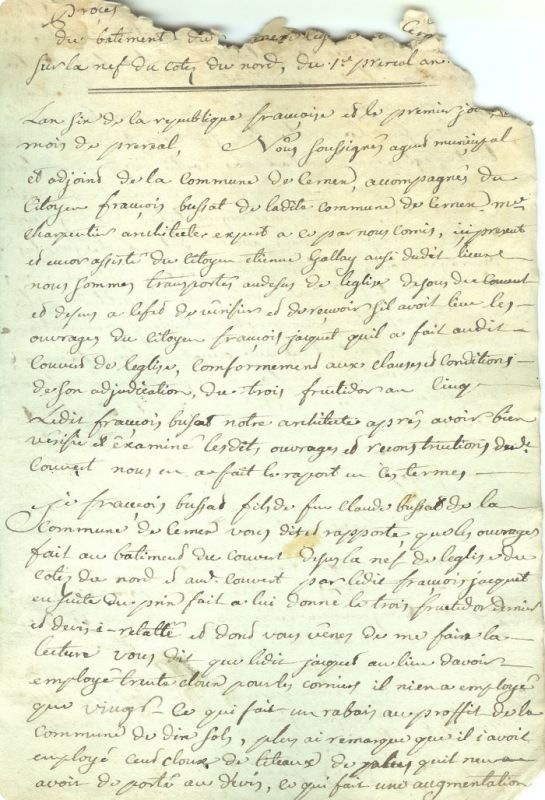 Procès
du bâtiment du
sur la nef du coté du nord, du 1er prereal an
Lan six de la republique françoise et le premier jo
mois de prereal, Nous soussignés agent municipal
et adjoind de la commune de Cernex, accompagnés du
Citoyen françois bussat de ladite commune de Cernex me
Charpentier architecte expert a ce par nous comis, icy present
et encor assisté du Citoyen etienne Gallay aussi dudit lieu
nous sommes transportés audesus de leglise desous du Couvert
et desus a lefed de vérifier et de recevoir sil avoit lieu les
ouvrages du Citoyen françois jacquet quil a fait audit
Couvert de leglise, comformement aux clauses et conditions
de son adjudication, du trois fruitidor an Cinq
Ledit françois bussat notre architecte après avoir bien
vérifié et éxaminé lesdits ouvrages et reconstructions dudt
Couvert nous en a fait le raport en ces termes
Je françois bussat fils de feu Claude bussat de la
Commune de Cernex vous dit et rapporte que les ouvrages
fait au bâtiment du couvert desus la nef de leglise du
coté du nord et audt couvert par ledit françois jacquet
en suite du prix fait a lui donné le trois fruitidor dernier
et devis i relatté et dond vous vénes de me faire la
lecture vous dit que ledit jacquet au lieu davoir
employé trente cloux pour les corniers il nien a employé
que vingt Ce qui fait un rabais au proffit de la
Commune de dix sols, plus ai remarqué que il i avoit
employé Cent cloux de liteaux de plus quil
avoir de porté au devis, ce qui fait une augmentation